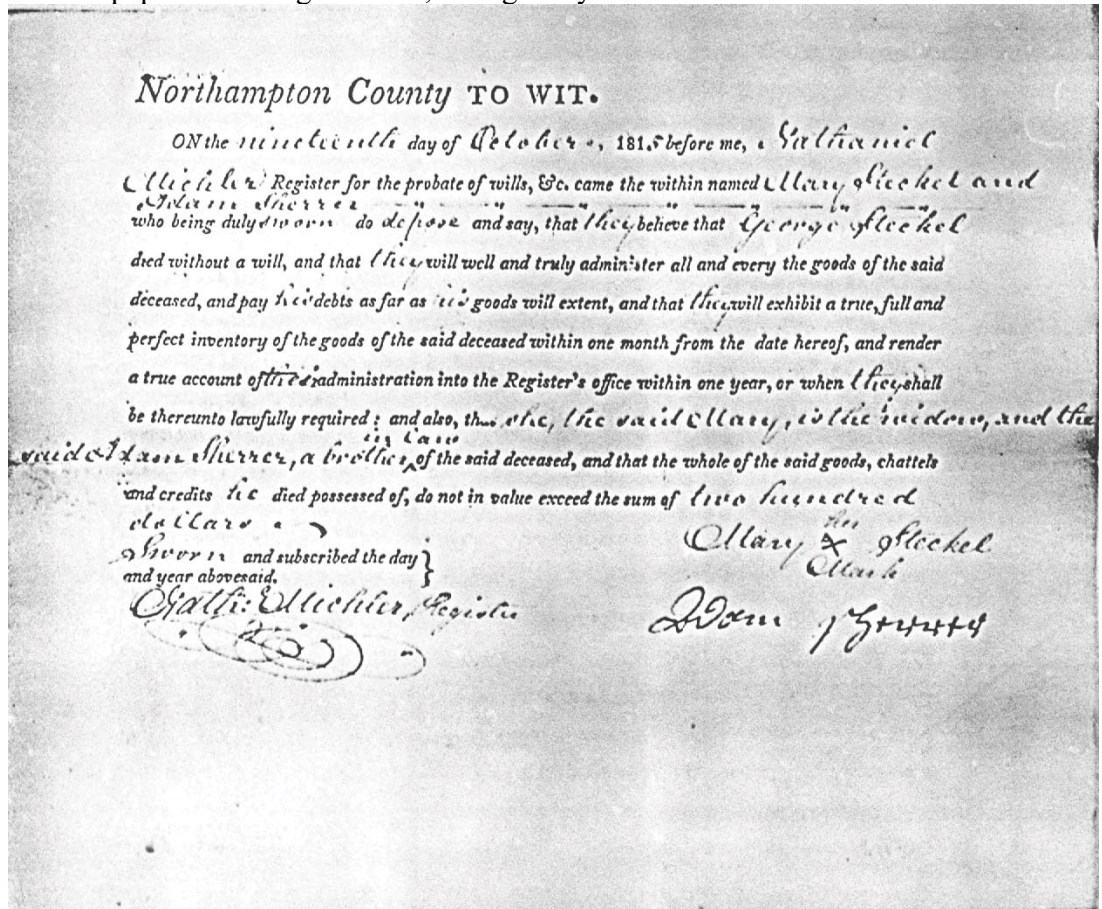 Northampton County TO WIT.
ON the nineteenth day of October, 1815 before me, Nathaniel
Michler Register for the probate of wills, &c. came the within named Mary Steckel and
Adam Sherrer
who being duly sworn do depose and say, that they believe that George Steckel
died without a will, and that they will well and truly administer all and every the goods of the said
deceased, and pay his debts as far as his goods will extent, and that they will exhibit a true, full and
perfect inventory of the goods of the said deceased within one month from the date hereof, and render
a true account of their administration into the Register's office within one year, or when they shall
be thereunto lawfully required; and also, that she, the said Mary, is the widow, and the
in law
said Adam Sherrer, a brother ^ of the said deceased, and that the whole of the said goods, chattels
and credits he died possessed of, do not in value exceed the sum of two hundred
dollars.
Sworn and subscribed the day
and year abovesaid.
Nath: Michler, Register
her
Mary X Steckel
Mark
Adam Sherrer